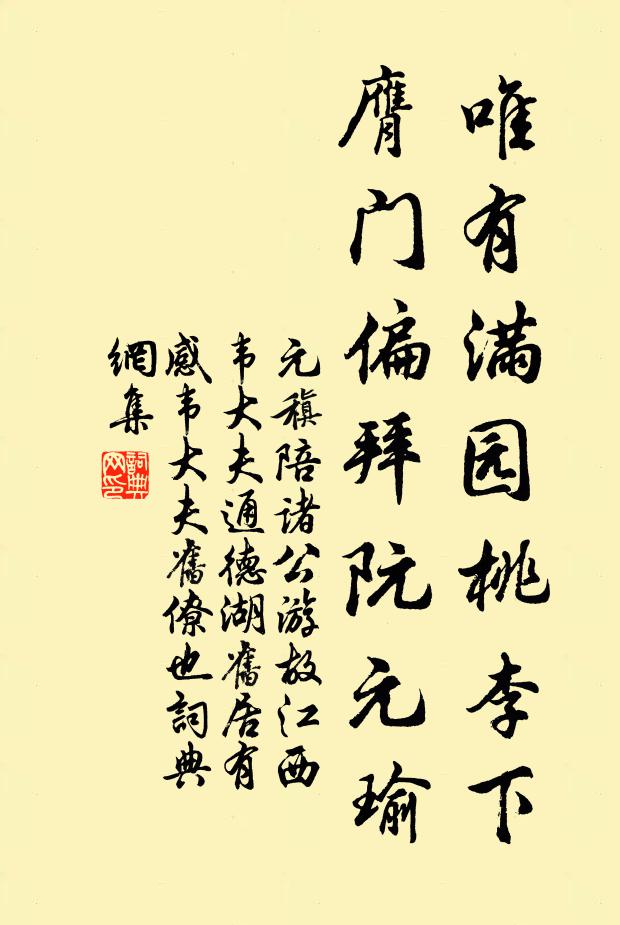 唯有满园桃李下
膺门偏拜阮元瑜
元稹陪诸公游故江西
韦大夫通德湖舊居有
感韦大夫舊僚也詞典
網集
詞典网印